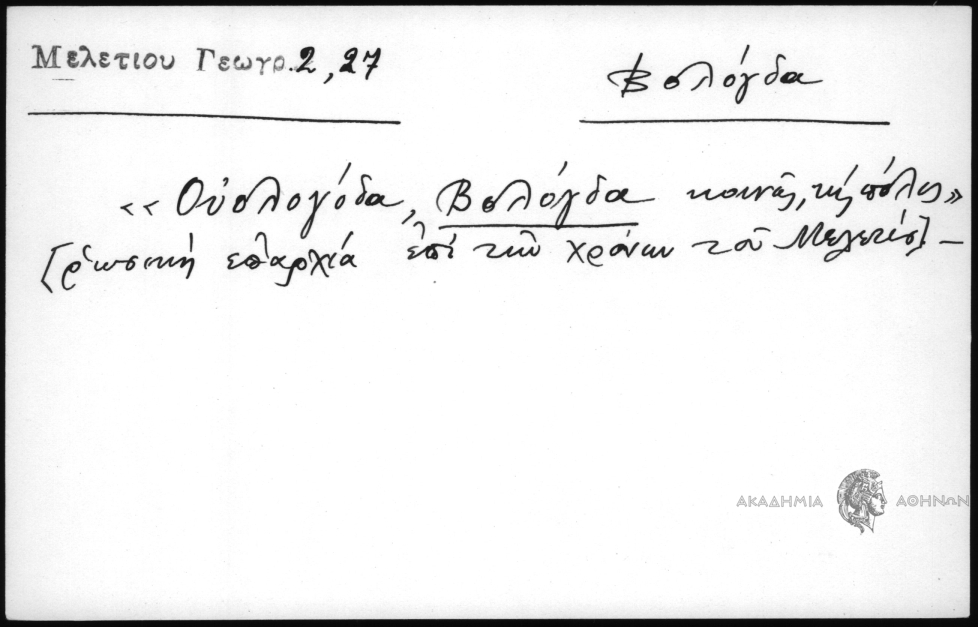 Μελετιου Γεωγρ. 2, 27
Βολόγδα
«Οὐολογόδα, Βολόγδα κοινῶς, τῆς πόλις»
[ρωσική επαρχία ἐπί τῶν χρόνων τοῦ Μελετίου] –
ΑΚΑΔΗΜΙΑ ΑΘΗΝΩΝ